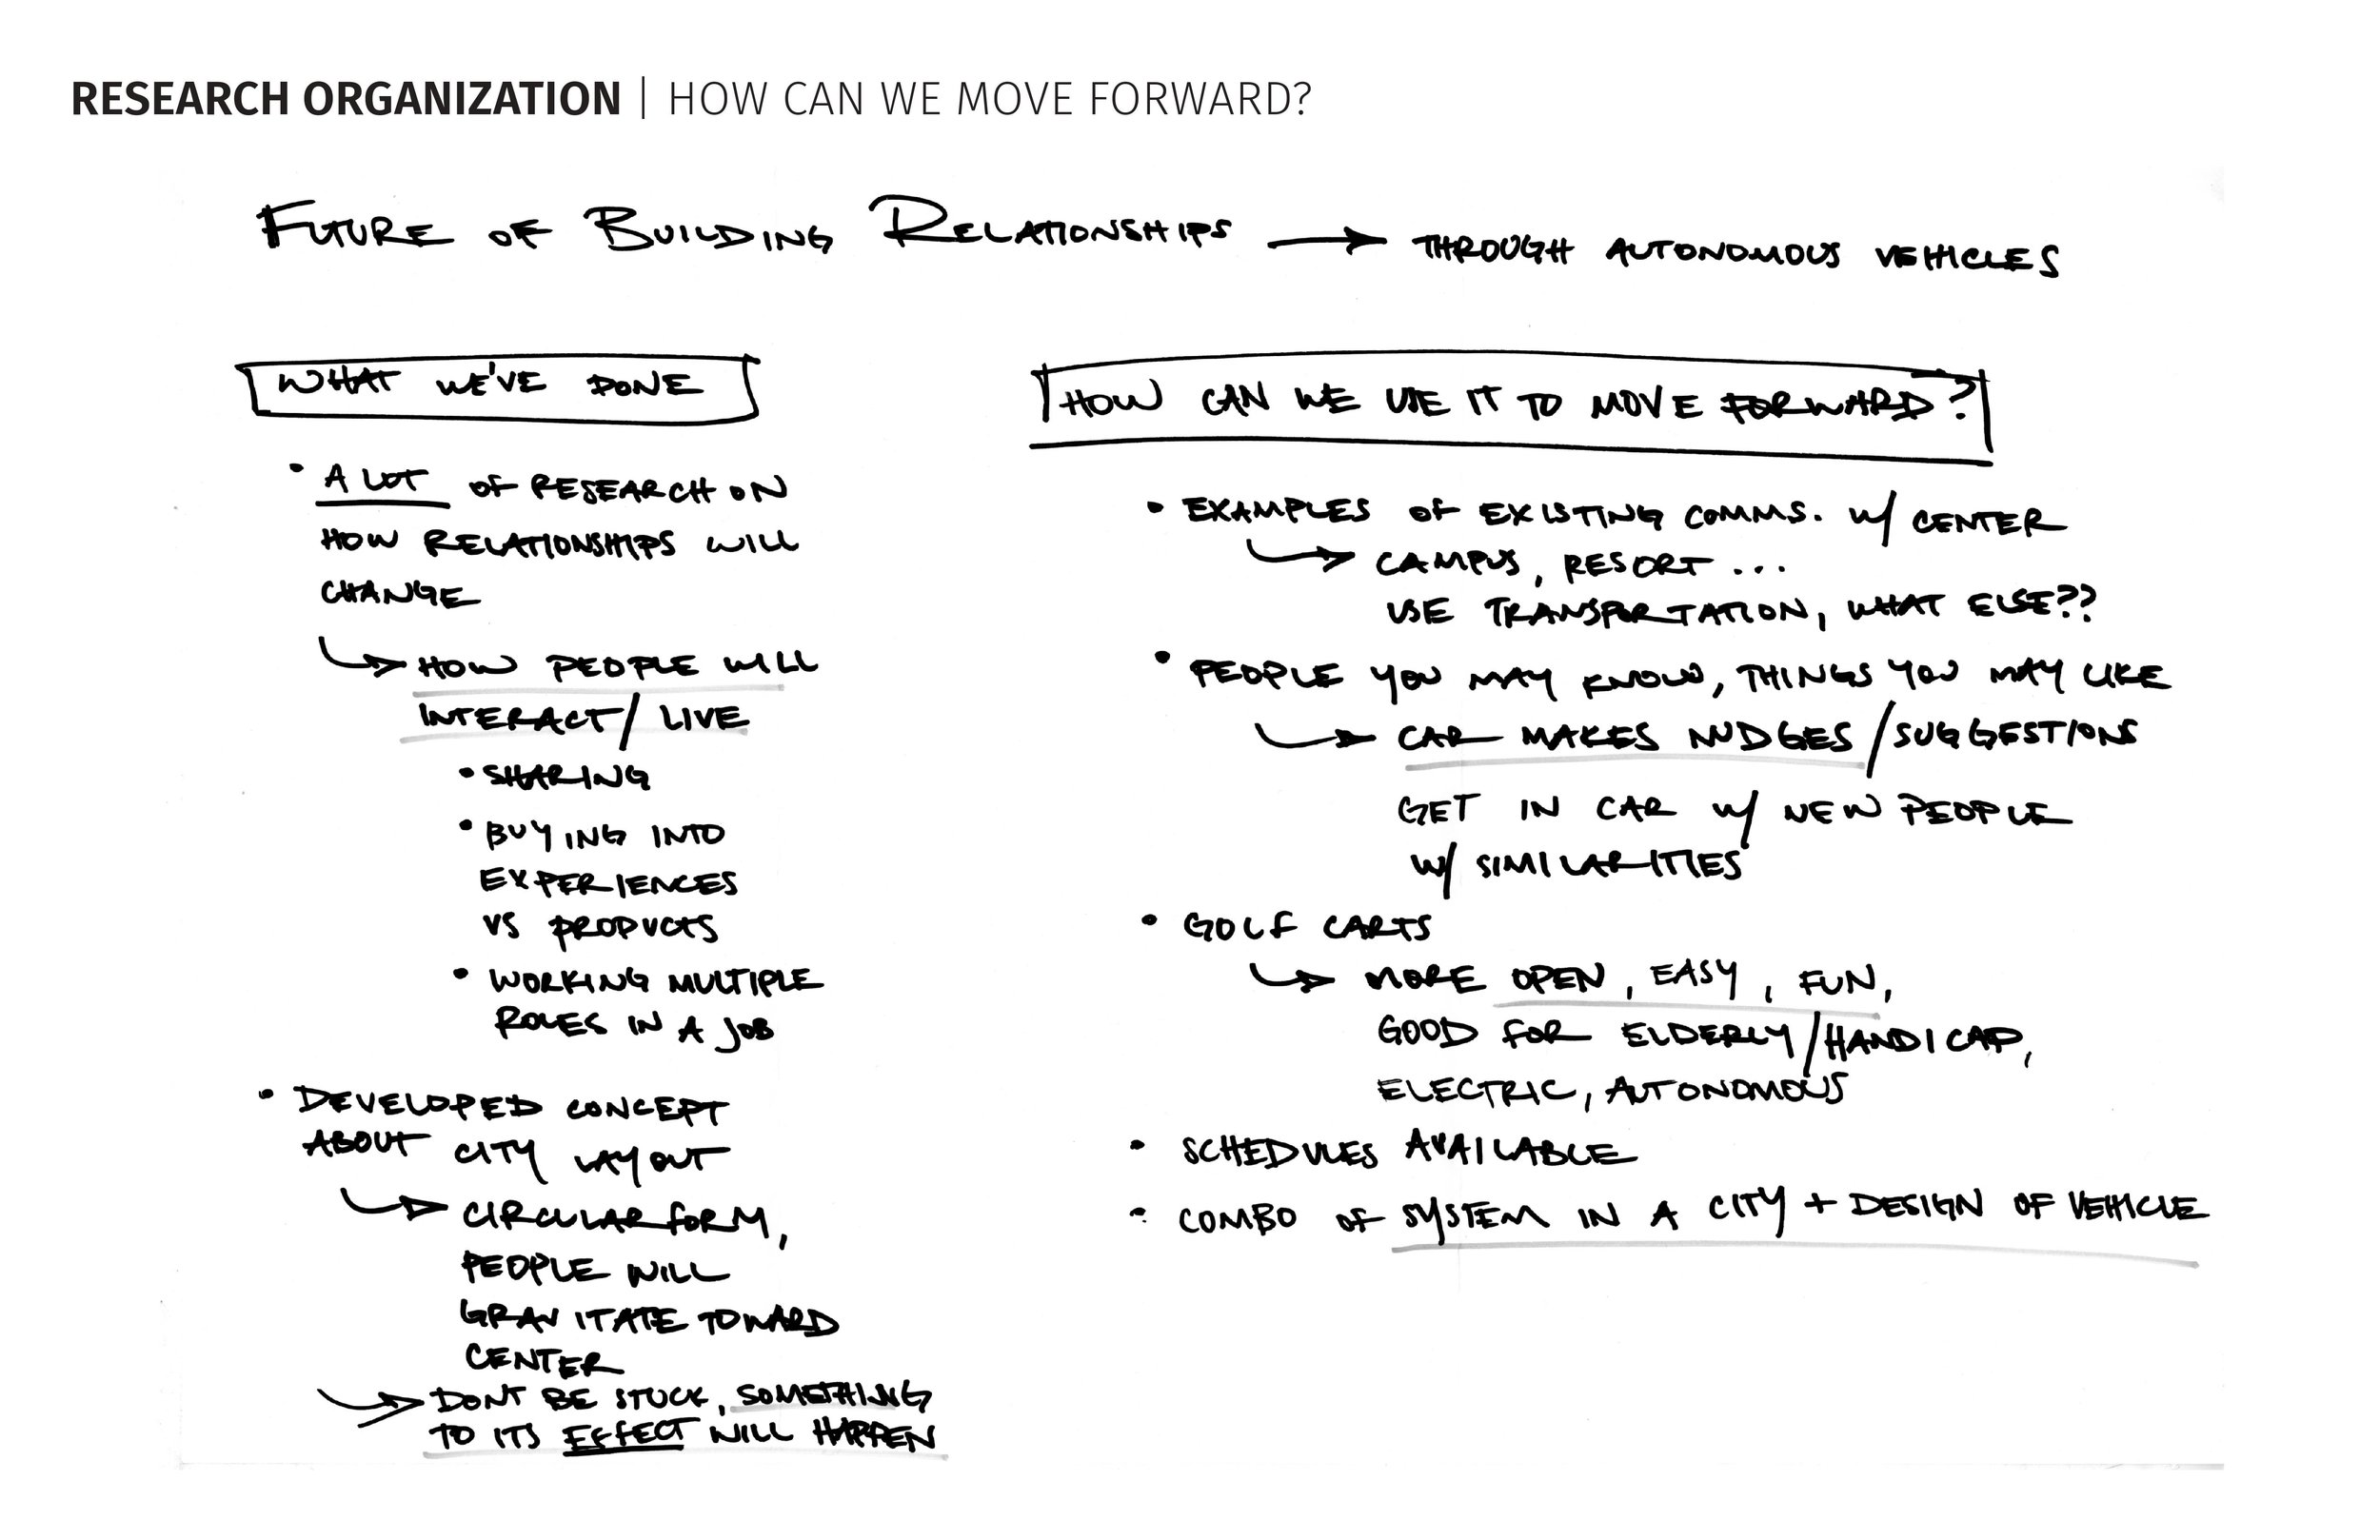 RESEARCH ORGANIZATION | HOW CAN WE MOVE FORWARD?
FUTURE OF BUILDING RELATIONSHIPS → THROUGH AUTONOMOUS VEHICLES
WHAT WE'VE DONE
• A LOT OF RESEARCH ON
HOW RELATIONSHIPS WILL
CHANGE
→ HOW PEOPLE WILL
INTERACT/ LIVE
• SHARING
• BUYING INTO
EXPERIENCES
VS PRODUCTS
• WORKING MULTIPLE
ROLES IN A JOB
• DEVELOPED CONCEPT
ABOUT CITY LAYOUT
→ CIRCULAR FORM,
PEOPLE WILL
GRAVITATE TOWARD
CENTER
→ DONT BE STUCK, SOMETHING
TO ITS EFFECT WILL HAPPEN
HOW CAN WE USE IT TO MOVE FORWARD?
• EXAMPLES OF EXISTING COMMS. W/ CENTER
→ CAMPUS, RESORT ...
USE TRANSPORTATION, WHAT ELSE??
• PEOPLE YOU MAY KNOW, THINGS YOU MAY LIKE
→ CAR MAKES NUDGES / SUGGESTIONS
GET IN CAR W/ NEW PEOPLE
W/ SIMILARITIES
• GOLF CARTS
→ MORE OPEN, EASY, FUN,
GOOD FOR ELDERLY/HANDICAP,
ELECTRIC, AUTONOMOUS
• SCHEDULES AVAILABLE
• COMBO OF SYSTEM IN A CITY + DESIGN OF VEHICLE